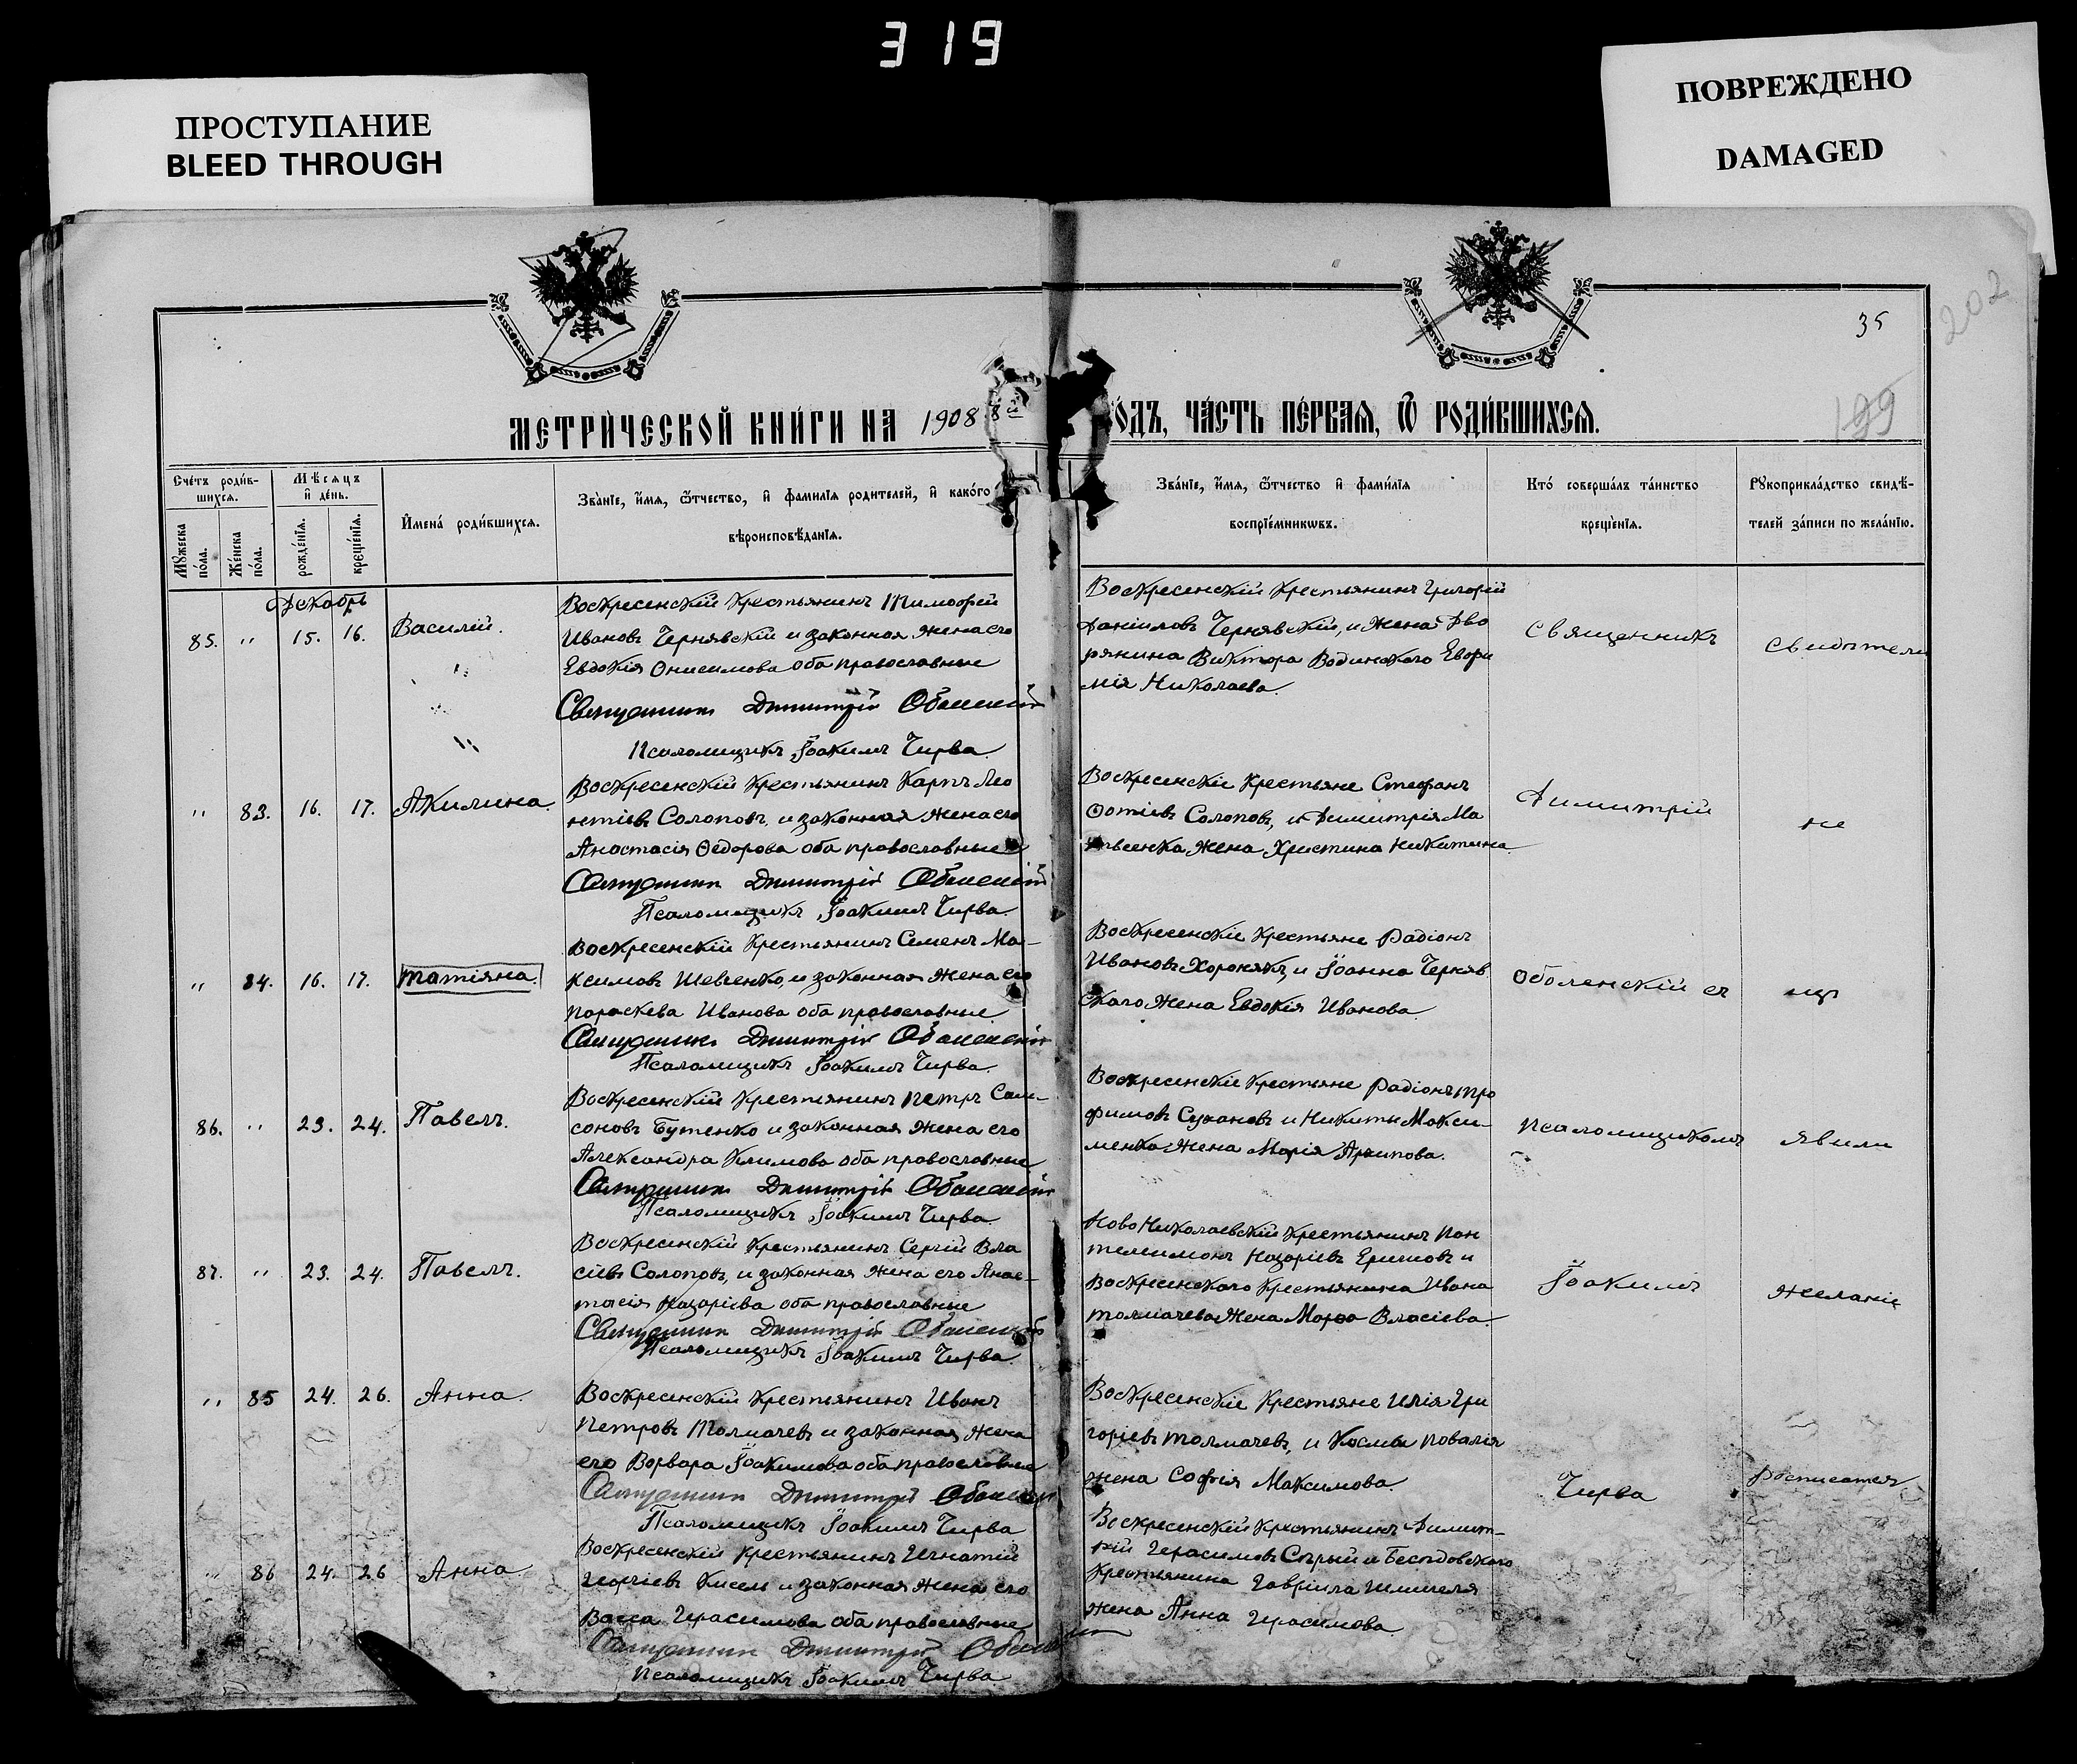 319
ПРОСТУПАНИЕ
BLEED THROUGH
ПОВРЕЖДЕНО
DAMAGED
202
35
199
МЕТРИ́ЧЕСКОЙ КНИ́ГИ НА 1908
ОДЪ, ЧА́СТЬ ПЕ́РВАЯ, Ѿ РОДИ́ВШИХСЯ.
Сче́тъ роди́в-
шихся.
Мѣ́сяцъ
и де́нь.
Мꙋ́жеска по́ла.
Же́нска по́ла.
рожде́нїя.
креще́нїя.
Имена́ роди́вшихся.
Зва́нїе, и́мя, ѻ́тчество, и фами́лїя роди́телей, и како́го
вѣроисповѣ́данїя.
Зва́нїе, и́мя, ѻ́тчество и фами́лїя
воспрїе́мникѡвъ.
Кто́ соверша́лъ та́инство
креще́нїя.
Рꙋкоприкла́дство свидѣ́-
телей за́писи по жела́нїю.
Декабрь
85. " 15. 16. Василій.
Воскресенскій крестьянинъ Тимофей
Ивановъ Чернявскій и законная жена его
Евдокія Онисимова оба православные
Священникъ Димитрій Оболенскій
Псаломщикъ Іоакимъ Чирва.
Воскресенскій крестьянинъ Григорій
Даніиловъ Чернявскій, и жена Дво
рянина Виктора Водинского Евфи
мія Николаева.
" 83. 16. 17. Акилина.
Воскресенскій крестьянинъ Карпъ Лео
нтіевъ Солоповъ, и законная жена его
Анастасія Ѳедорова оба православные
Священникъ Димитрій Оболенскій
Псаломщикъ Іоакимъ Чирва.
Воскресенскіе крестьяне Стефанъ
Фотіевъ Солоповъ, и Димитрія Ма
твеенка жена Христина Никитина
" 84. 16. 17. Татіяна.
Воскресенскій крестьянинъ Семенъ Ма-
ксимовъ Шевченко, и законная жена его
Параскева Иванова оба православные
Священникъ Димитрій Оболенскій
Псаломщикъ Іоакимъ Чирва.
Воскресенскіе крестьяне Радіонъ
Ивановъ Хоронякъ, и Іоанна Черняв
ского жена Евдокія Иванова.
86. " 23. 24. Павелъ.
Воскресенскій крестьянинъ Петръ Сам-
соновъ Бутенко и законная жена его
Александра Климова оба православные
Священникъ Димитрій Оболенскій
Псаломщикъ Іоакимъ Чирва.
Воскресенскіе крестьяне Радіонъ Тро
фимовъ Сухановъ и Никиты Макси-
менка жена Марія Архипова.
87. " 23. 24. Павелъ.
Воскресенскій крестьянинъ Сергій Вла
сіевъ Солоповъ, и законная жена его Анас-
тасія Назаріева оба православные
Священникъ Димитрій Оболенскій
Псаломщикъ Іоакимъ Чирва.
Ново Николаевскій крестьянинъ Пан
телеимонъ Назаріевъ Ершовъ и
Воскресенского крестьянина Ивана
Толмачева жена Марѳа Власіева.
" 85 24. 26. Анна.
Воскресенскій крестьянинъ Иванъ
Петровъ Толмачевъ и законная жена
его Варвара Іоакимова оба православные
Священникъ Димитрій Оболенскій
Псаломщикъ Іоакимъ Чирва
Воскресенскіе крестьяне Илія Гри
горіевъ Толмачевъ, и Космы Ковалія
жена Софія Максимова.
" 86 24. 26 Анна.
Воскресенскій крестьянинъ Игнатій
Георгіевъ Кисель и законная жена его
Васса Герасимова оба православные
Священникъ Димитрій Оболенскій
Псаломщикъ Іоакимъ Чирва
Воскресенскій крестьянинъ Димит-
рій Герасимовъ Сѣрый и Бесѣдовского
крестьянина Гавріила Шмигеля
жена Анна Герасимова.
Священникъ
Димитрій
Оболенскій съ
Псаломщикомъ
Іоакимъ
Чирва
Свидѣтели
не
изъ
явили
желаніе
росписатся